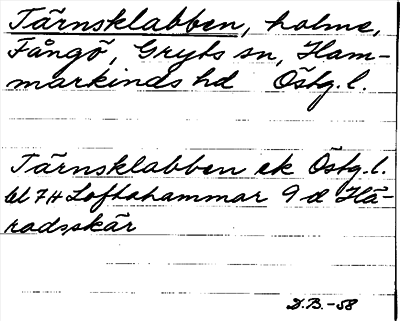 Tärnsklabben, holme,
Fångö, Gryts sn, Ham-
markinds hd Östg. l.
Tärnsklabben ek Östg. l.
bl 7H Loftahammar 9 d Hä-
radsskär
D.B.-58